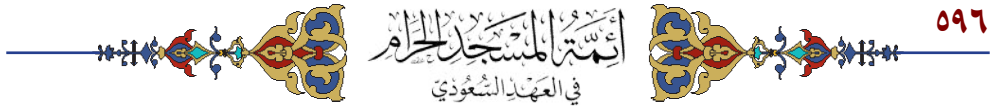 ٥٩٦
أئمة المسجد الحرام
في العهد السعودي